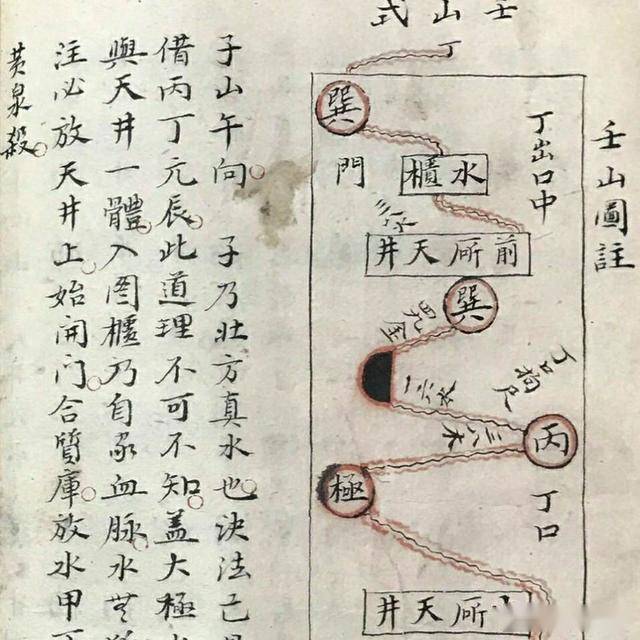 壬山式
壬山圖註
丁
丁出口中
巽
門
水櫃
三八木
前㕔天井
巽
四九金
丁口拘尺
一六水
三八木
丙
極
丁口
㕔天井
子山午向 子乃壯方真水也決法己
借丙丁元辰此道理不可不知蓋大極
與天井一體入圖櫃乃自家血脉水
注必放天井上始開门合質庫放水甲
黄泉殺